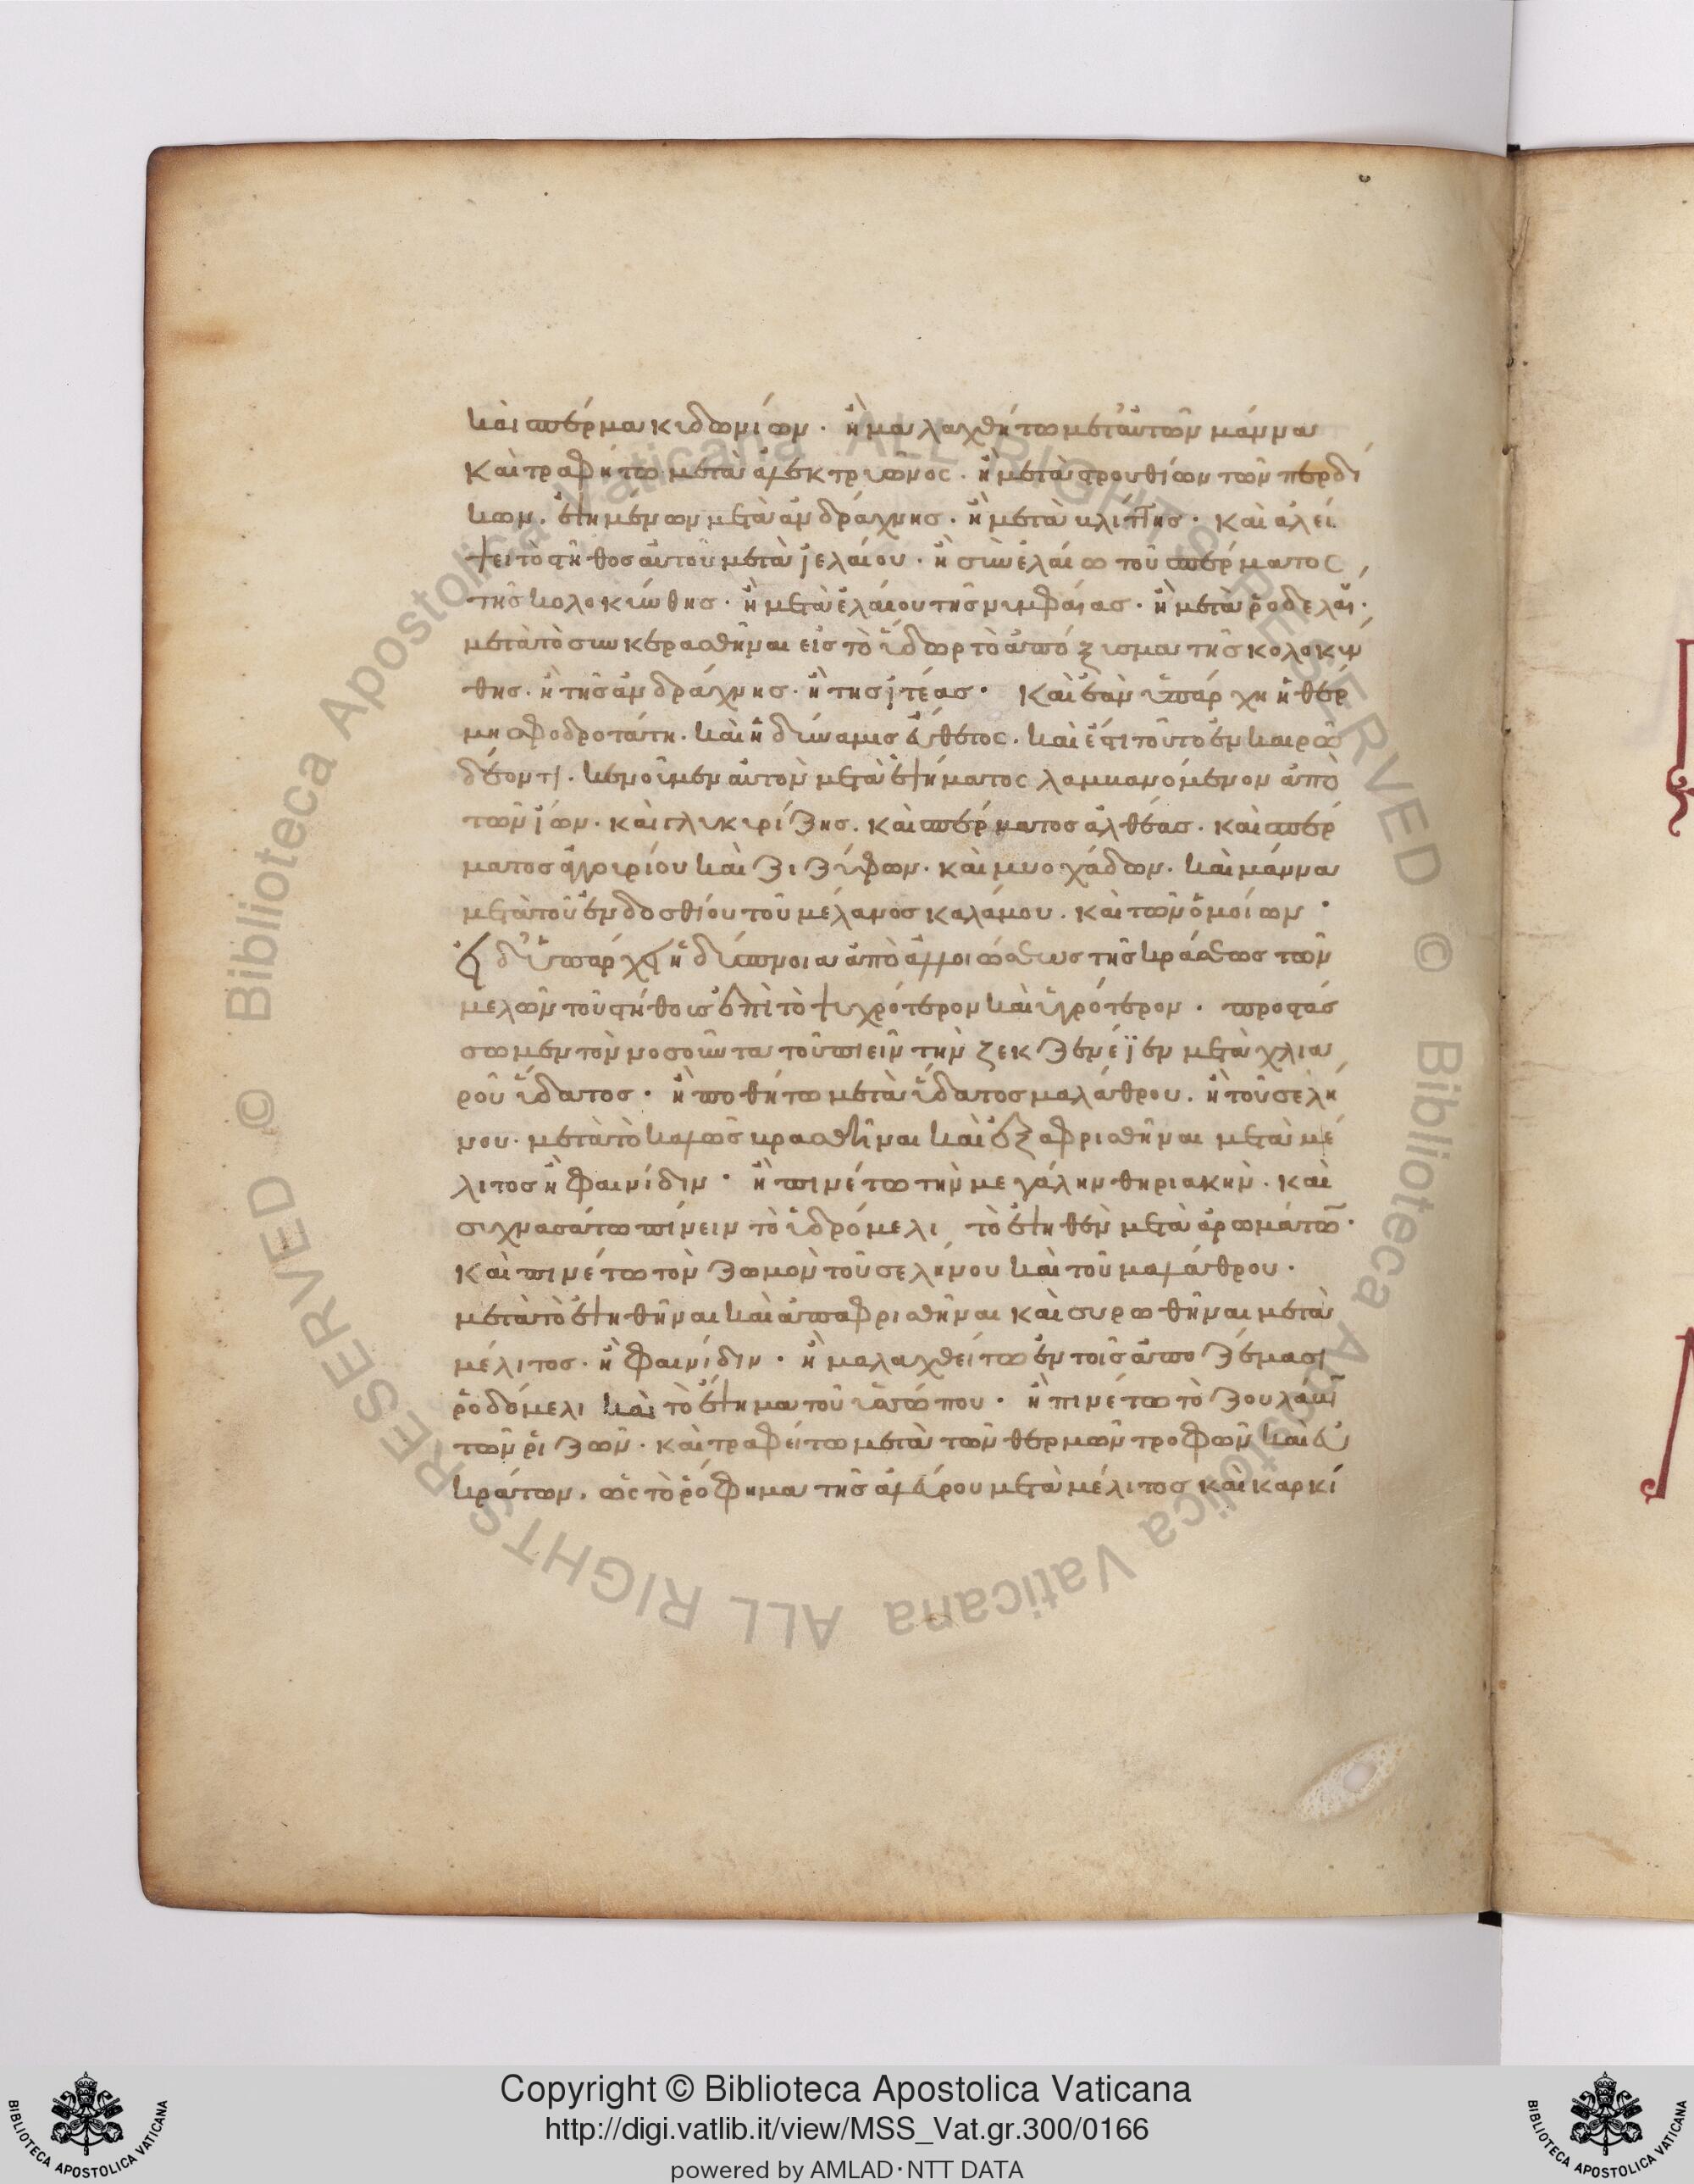 καὶ σπέρμα κιδωνίων · ἢ μαλαχθήτω μετ' αὐτῶν μάννα
καὶ τραφήτω μετὰ ἀλεκτριῶνος · ἢ μετὰ στρουθίων τῶν περδί
κων. ἑψημένων μετὰ ἀνδράχνης · ἢ μετὰ κλίπης · καὶ ἀλεί
ψει τὸ στῆθος αὐτοῦ μετὰ ἰελαίου · ἢ σὺν ἐλαίω τοῦ σπέρματος
τῆς κολοκύνθης · ἢ μετὰ ἐλαίου τῆς νυμφαίας · ἢ μετὰ ῥοδελαί ·
μετὰ τὸ συγκερασθῆναι εἰς τὸ ὕδωρ τὸ ἀπόξισμα τῆς κολοκύν
θης · ἢ τῆς ἀνδράχνης · ἢ τῆς ἰτέας · καὶ ἐὰν ὑπάρχη ἡ θέρ
μη σφοδροτάτη. καὶ ἡ δύναμις εὔθετος. καὶ ἔστι τοῦτο ἐν καιρῶ
δέοντι. κενοῦμεν αὐτὸν μετὰ ἑψήματος λαμβανόμενον ἀπὸ
τῶν ἴων · καὶ γλυκυρίζης. καὶ σπέρματος ἀλθέας · καὶ σπέρ
ματος ἀγγουρίου καὶ ζιζύφων · καὶ μυοχάδων. καὶ μάννα
μετὰ τοῦ ἐνδοσθίου τοῦ μέλανος καλάμου. καὶ τῶν ὁμοίων ·
εἰ δ' ὑπάρχει ἡ δύσπνοια ἀπὸ ἀλλοιώσεως τῆς κράσεως τῶν
μελῶν τοῦ στήθους ἐπὶ τὸ ψυχρότερον καὶ ὑγρότερον · προστάσ
σωμεν τὸν νοσοῦντα τοῦ πιεῖν τὴν ζεκζενέϊεν μετὰ χλια
ροῦ ὕδατος · ἢ ποθήτω μετὰ ὕδατος μαλάθρου. ἢ τοῦ σελή
νου · μετὰ τὸ καλῶς κρασθῆναι καὶ ἐξαφρισθῆναι μετὰ μέ
λιτος ἢ φαινίδιν · ἢ πινέτω τὴν μεγάλην θηριακὴν. καὶ
συχνασάτω πίνειν τὸ ὑδρόμελι, τὸ ἑψηθὲν μετὰ ἀρωμάτων ·
καὶ πινέτω τὸν ζωμὸν τοῦ σελήνου καὶ τοῦ μαλάθρου ·
μετὰ τὸ ἑψηθῆναι καὶ ἀπαφρισθῆναι καὶ συρωθῆναι μετὰ
μέλιτος · ἢ φαινίδιν · ἢ μαλαχθείτω ἐν τοῖς ἀποζέμασι
ῥοδόμελι καὶ τὸ ἕψημα τοῦ ὑσσώπου · ἢ πινέτω τὸ ζουλάπιν
τῶν ῥιζῶν · καὶ τραφείτω μετὰ τῶν θερμῶν τροφῶν καὶ εὐ
κράτων. ὡς τὸ ῥόφημα τῆς ἀλεύρου μετὰ μέλιτος καὶ καρκί
Copyright © Biblioteca Apostolica Vaticana
http://digi.vatlib.it/view/MSS_Vat.gr.300/0166
powered by AMLAD · NTT DATA
© Biblioteca Apostolica Vaticana ALL RIGHTS RESERVED
© Biblioteca Apostolica Vaticana ALL RIGHTS RESERVED
BIBLIOTECA APOSTOLICA VATICANA
BIBLIOTECA APOSTOLICA VATICANA